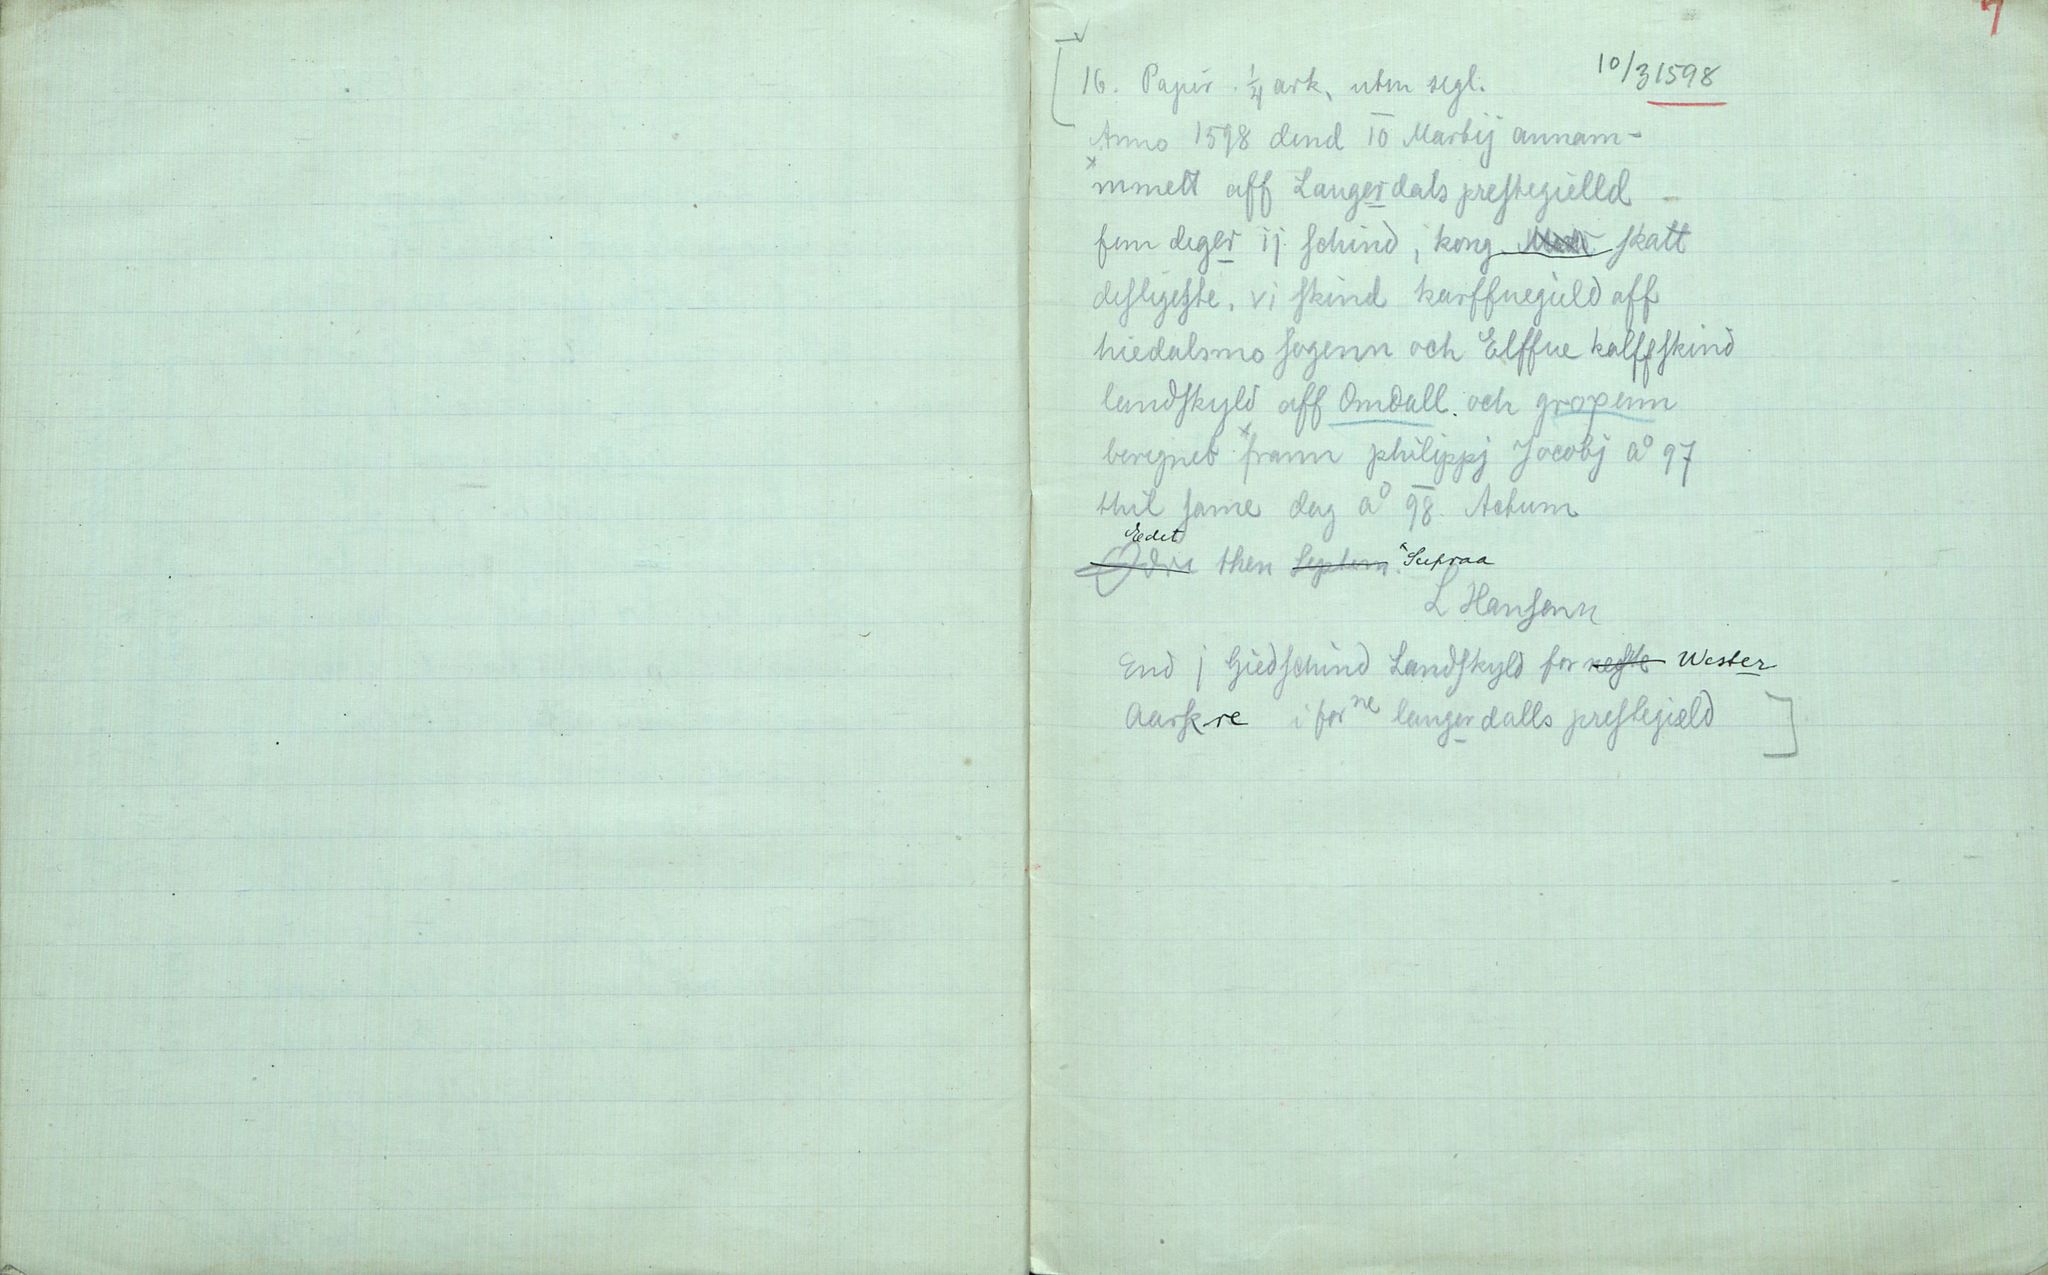 7
16. Papir. 1/4 ark, uten segl.
10/3 1598
Anno 1598 dend 10 Martij annam-
mmett aff Laugerdals prestegielld
fem deger ij schind, i kong skatt
desligeste. vj skind karffuegield aff
hiedalsmo sogenn och Elffue kalffskind
landskyld aff Omdall. och gropenn
beregned frann philippj Jacobj a° 97
thil same dag a° 98. Actum
Edet
Odri then Septem. Supraa
L Hansenn
End j Giedschind Landskyld for neste Wester
Aarskre i forne laugerdalls prestegield